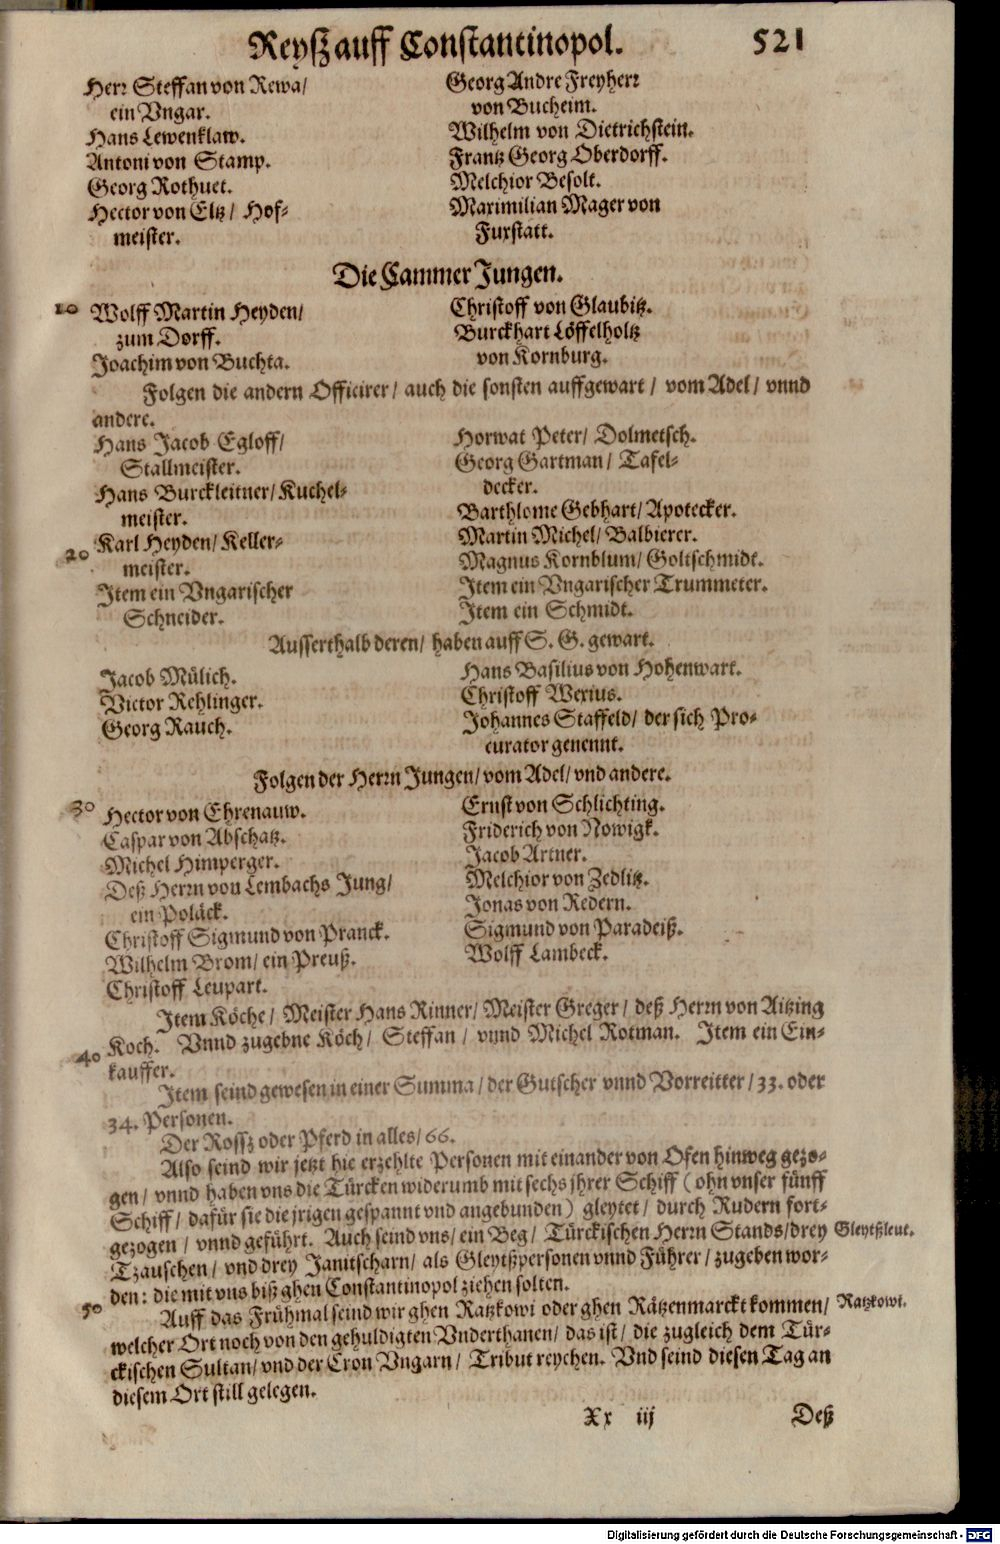 Reyß auff Constantinopol. 521
Herr Steffan von Rewa/
ein Vngar.
Hans Lewenklaw.
Antoni von Stamp.
Georg Rothuet.
Hector von Eltz/ Hof-
meister.
Georg Andre Freyherr
von Bucheim.
Wilhelm von Dietrichstein.
Frantz Georg Oberdorff.
Melchior Besolt.
Maximilian Mager von
Fuxstatt.
Die Cammer Jungen.
10 Wolff Martin Heyden/
zum Dorff.
Joachim von Buchta.
Christoff von Glaubitz.
Burckhart Löffelholtz
von Kornburg.
Folgen die andern Officirer/ auch die sonsten auffgewart/ vom Adel/ vnnd
andere.
Hans Jacob Egloff/
Stallmeister.
Hans Burckleitner/ Kuchel-
meister.
Karl Heyden/ Keller-
20 meister.
Item ein Vngarischer
Schneider.
Horwat Peter/ Dolmetsch.
Georg Gartman/ Tafel-
decker.
Barthlome Gebhart/ Apotecker.
Martin Michel/ Balbierer.
Magnus Kornblum/ Goltschmidt.
Item ein Vngarischer Trummeter.
Item ein Schmidt.
Ausserthalb deren/ haben auff S. G. gewart.
Jacob Mülich.
Victor Rehlinger.
Georg Rauch.
Hans Basilius von Hohenwart.
Christoff Wexius.
Johannes Staffeld/ der sich Pro-
curator genennt.
Folgen der Herrn Jungen/ vom Adel/ vnd andere.
30 Hector von Ehrenauw.
Caspar von Abschatz.
Michel Himperger.
Deß Herrn von Lembachs Jung/
ein Poläck.
Christoff Sigmund von Pranck.
Wilhelm Brom/ ein Preuß.
Christoff Leupart.
Ernst von Schlichting.
Friderich von Nowigk.
Jacob Artner.
Melchior von Zedlitz.
Jonas von Redern.
Sigmund von Paradeiß.
Wolff Lambeck.
Item Köche/ Meister Hans Rinner/ Meister Greger/ deß Herrn von Aitzing
40 Koch. Vnnd zugebne Köch/ Steffan/ vnnd Michel Rotman. Item ein Ein-
kauffer.
Item seind gewesen in einer Summa/ der Gutscher vnnd Vorreitter/ 33. oder
34. Personen.
Der Rossz oder Pferd in alles/ 66.
Also seind wir jetzt hie erzehlte Personen mit einander von Ofen hinweg gezo-
gen/ vnnd haben vns die Türcken widerumb mit sechs jhrer Schiff (ohn vnser fünff
Schiff/ dafür sie die jrigen gespannt vnd angebunden) gleytet/ durch Rudern fort-
gezogen/ vnnd geführt. Auch seind vns/ ein Beg/ Türckischen Herrn Stands/ drey Gleytßleut.
Tzauschen/ vnd drey Janitscharn/ als Gleytßpersonen vnnd Führer/ zugeben wor-
den: die mit vns biß ghen Constantinopol ziehen solten.
50 Auff das Frühmal seind wir ghen Ratzkowi oder ghen Rätzenmarckt kommen/ Ratzkowi.
welcher Ort noch von den gehuldigten Vnderthanen/ das ist/ die zugleich dem Tür-
ckischen Sultan/ vnd der Cron Vngarn/ Tribut reychen. Vnd seind diesen Tag an
diesem Ort still gelegen.
Xx iij Deß
Digitalisierung gefördert durch die Deutsche Forschungsgemeinschaft - DFG